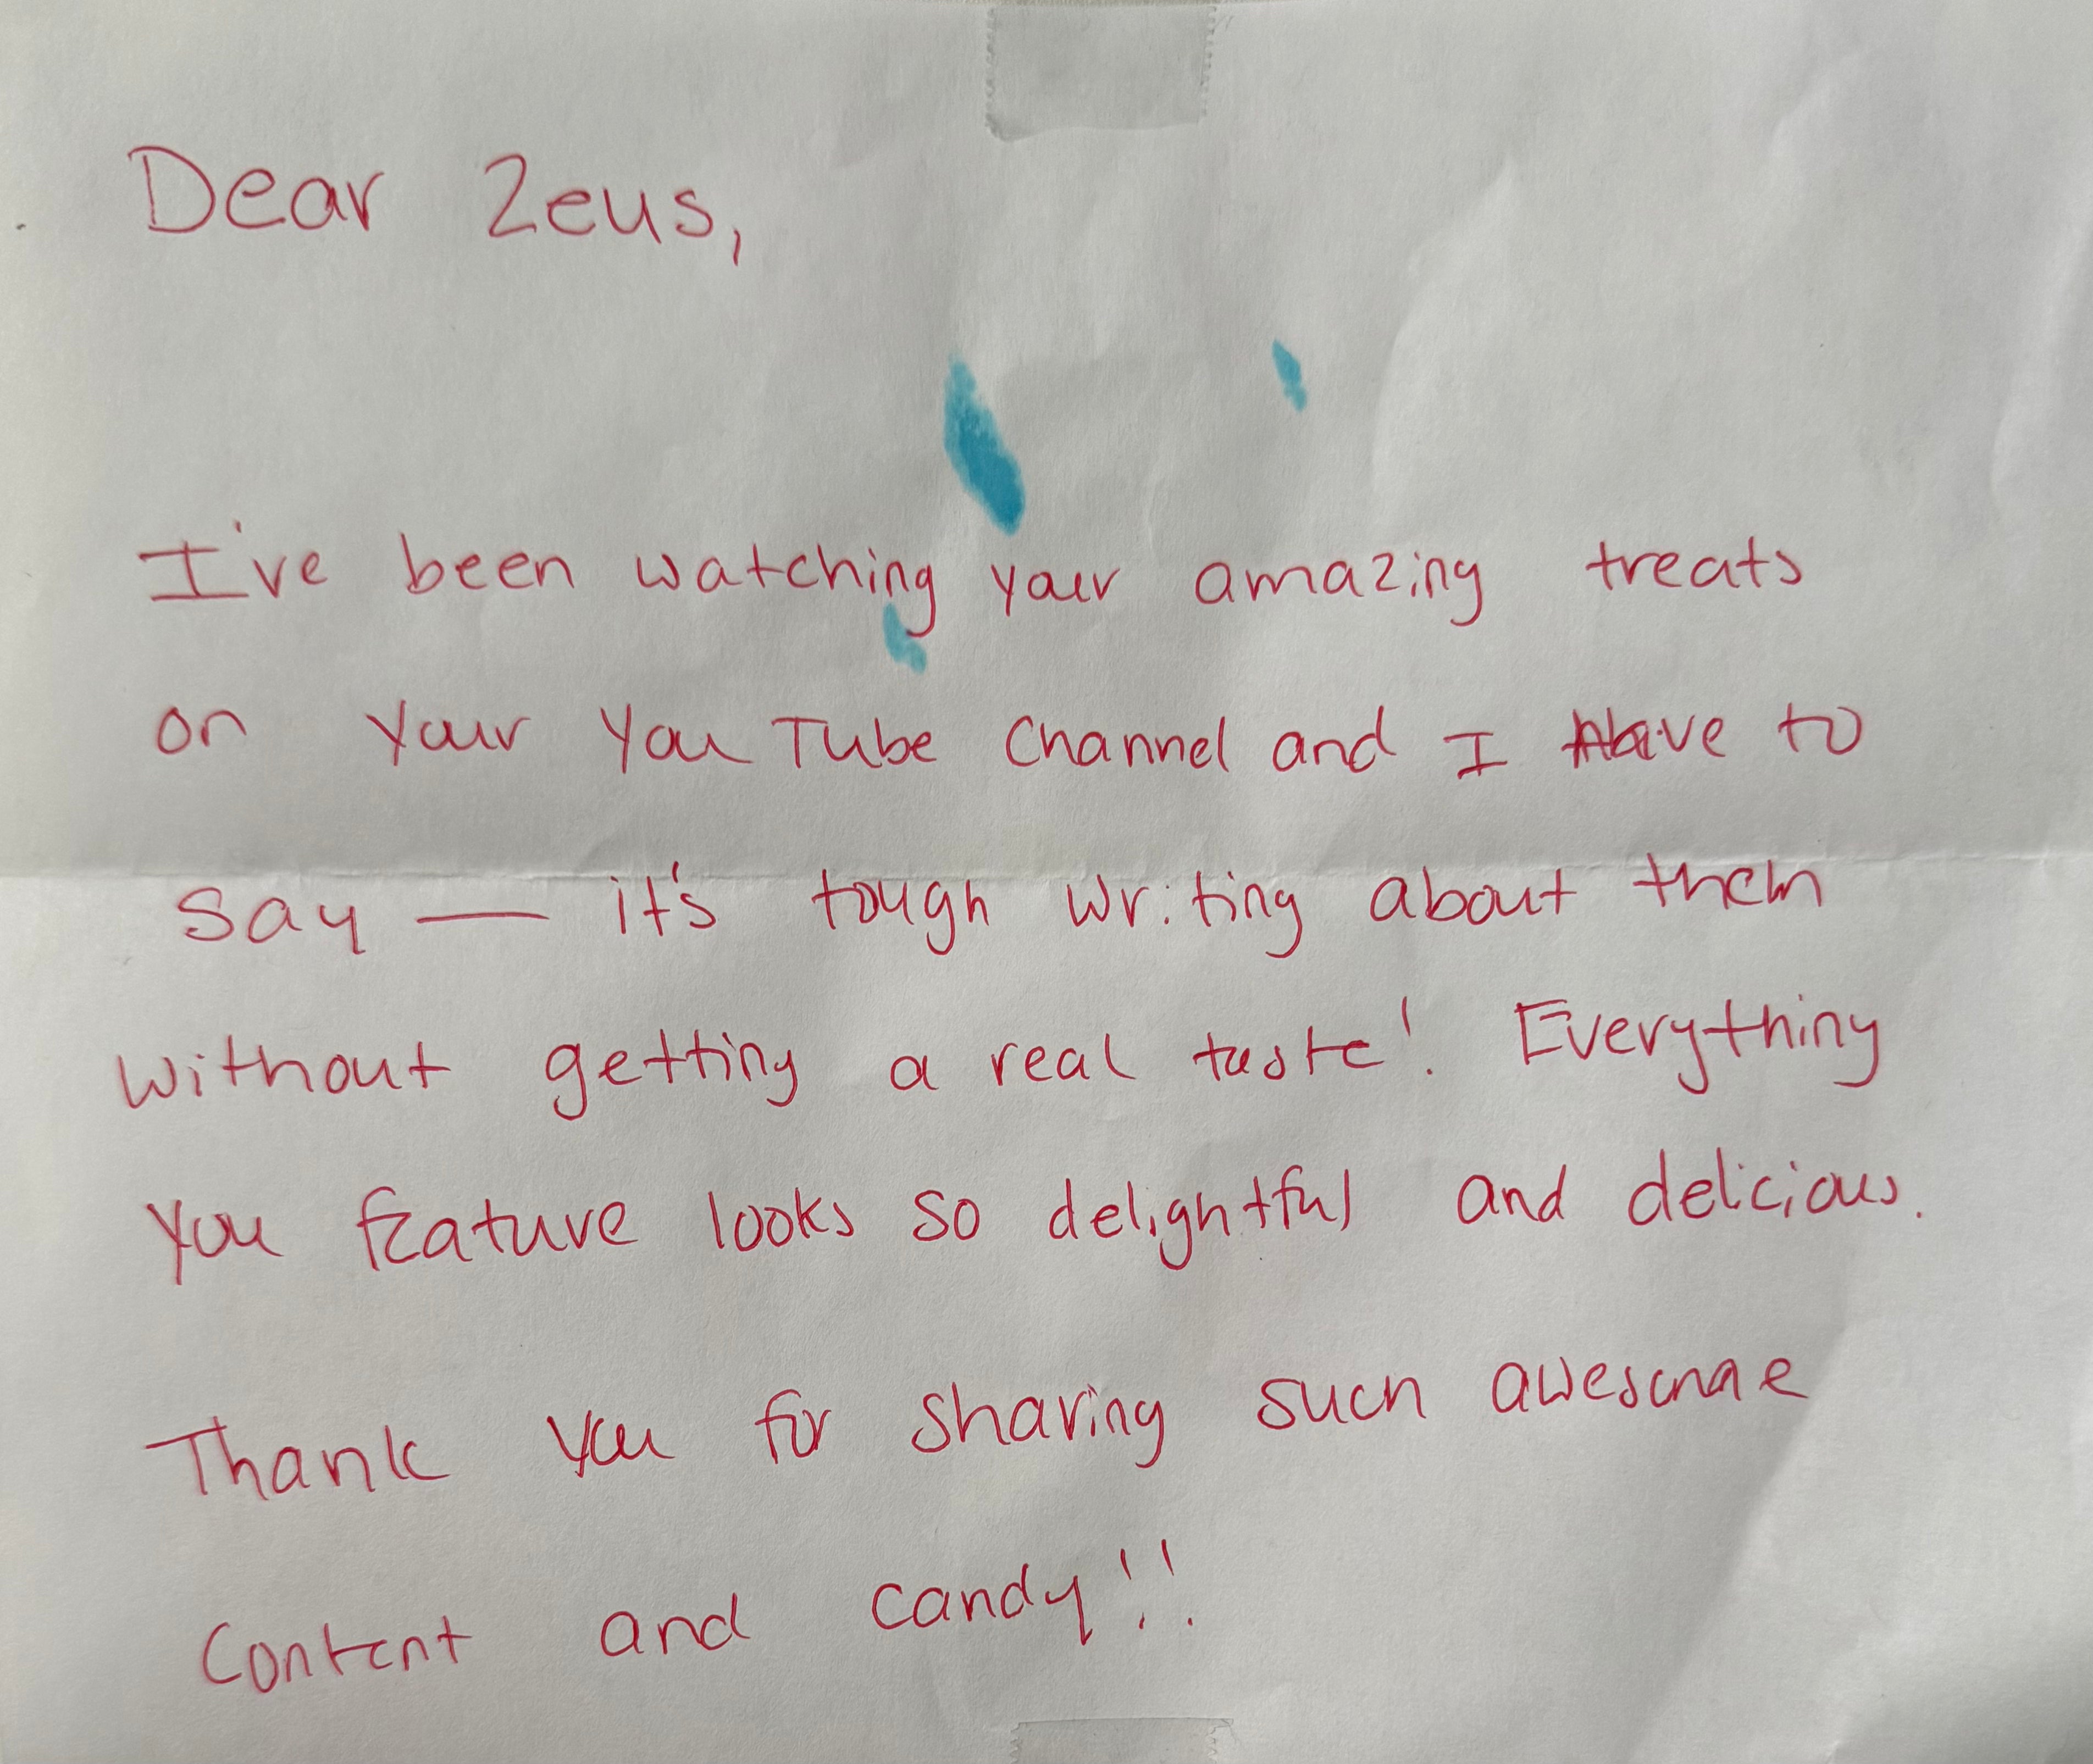 Dear Zeus,
I've been watching your amazing treats
on your YouTube Channel and I have to
say — it's tough writing about them
without getting a real taste! Everything
you feature looks so delightful and delicious.
Thank you for sharing such awesome
content and candy!!